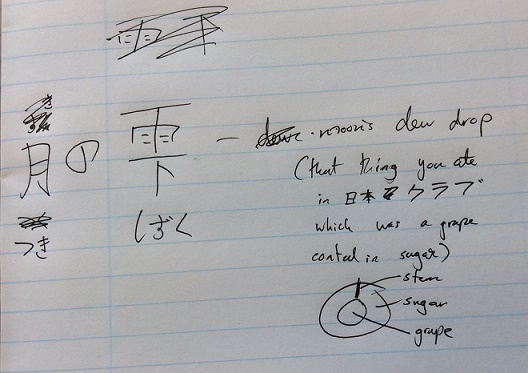 月の雫 — moon's dew drop
つき しずく
(that thing you ate
in 日本クラブ
which was a grape
coated in sugar)
stem
sugar
grape